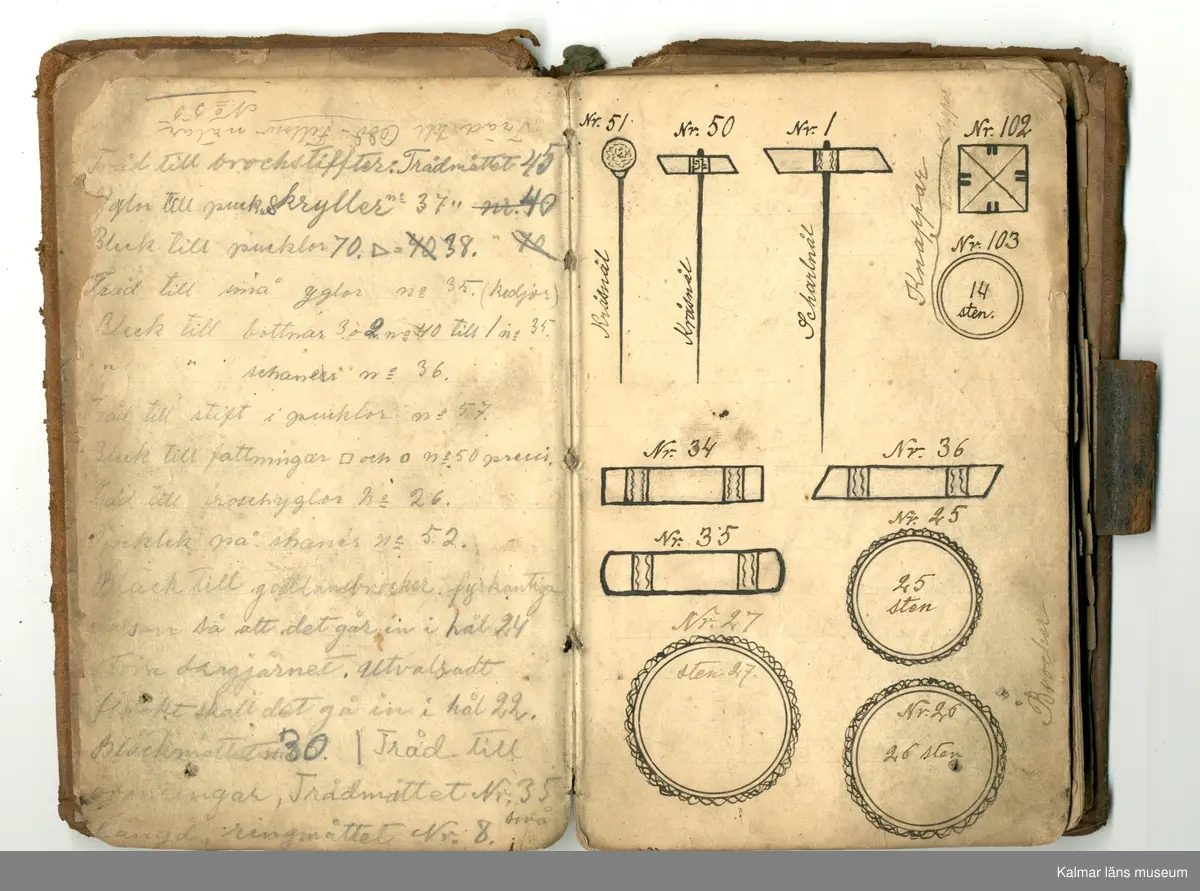 No 58
Tråd till
Tråd till brochstiffter. Trådmåttet 45
Yglor till puck. skryller" no 37 " nr. 40
Bleck till pucklor 70. = 40 38. " 40
Tråd till små yglor no 35. (kedjor)
Bleck till bottnar 3 o 2 no 40 till 1 no 35.
" " no 36.
Tråd till stift i pucklor no 57.
Bleck till fattningar □ och o no 50 precis.
Tråd till yglor No 26.
på no 52.
Bläck till fyrkantiga
så att det går in i hål 24
dragjärnet. Utvalsadt
skall det gå in i hål 22.
30. | Tråd till
Trådmåttet Nr. 35
små
Längd, ringmåttet Nr. 8.
Nr. 51.
Nr. 50
Nr. 1
Nr. 102
Kråsnål
Kråsnål
Scharlnål
Knappar
Nr. 103
14
sten.
Nr. 34
Nr. 36
Nr. 35
Nr. 25
25
sten
Nr. 27
sten 27.
Nr. 26
26 sten
Brocher
Kalmar läns museum